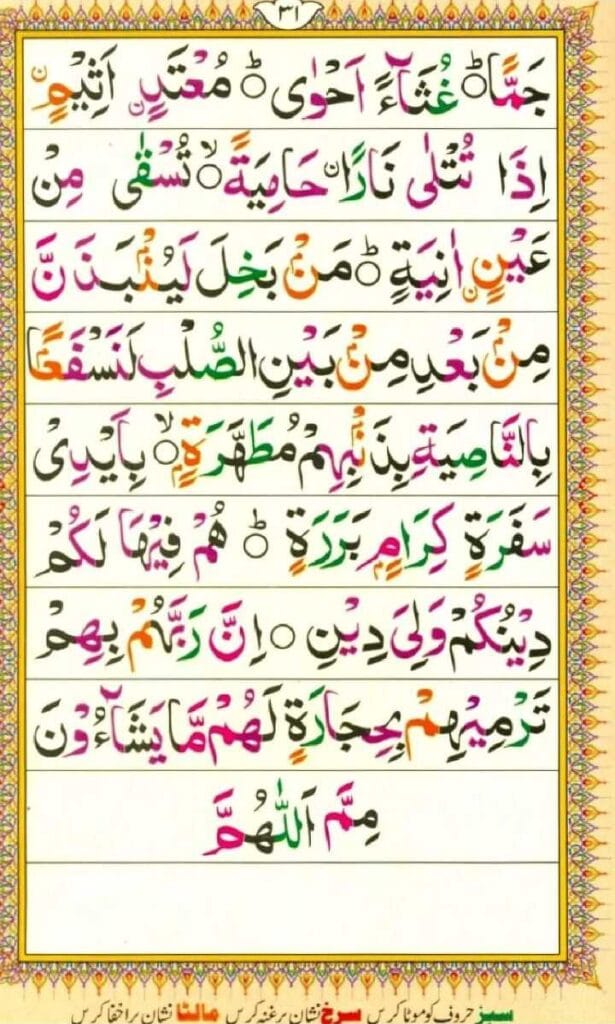 ٣١
جَمًّا ؕ غُثَآءً اَحْوٰی ؕ مُعْتَدٍ اَثِیْمٍ
اِذَا تُتْلٰی نَارًا حَامِیَةً ۙ تُسْقٰی مِنْ
عَیْنٍ اٰنِیَةٍ ؕ مَنْۢ بَخِلَ لَیُنْۢبَذَنَّ
مِنْۢ بَعْدِ مِنْۢ بَیْنِ الصُّلْبِ لَنَسْفَعًۢا
بِالنَّاصِیَةِ بِذَنْۢبِهِمْ مُطَهَّرَةٍۭ ۙ بِاَیْدِیْ
سَفَرَةٍ کِرَامٍۭ بَرَرَةٍ ؕ هُمْ فِیْهَا لَکُمْ
دِیْنُکُمْ وَلِیَ دِیْنِ ○ اِنَّ رَبَّهُمْ بِهِمْ
تَرْمِیْهِمْ بِحِجَارَةٍ لَهُمْ مَّا یَشَآءُوْنَ
مِمَّ اَللّٰهُمَّ
سبز حروف کو موٹا کریں سرخ نشان پر غنہ کریں مالٹا نشان پر اخفا کریں